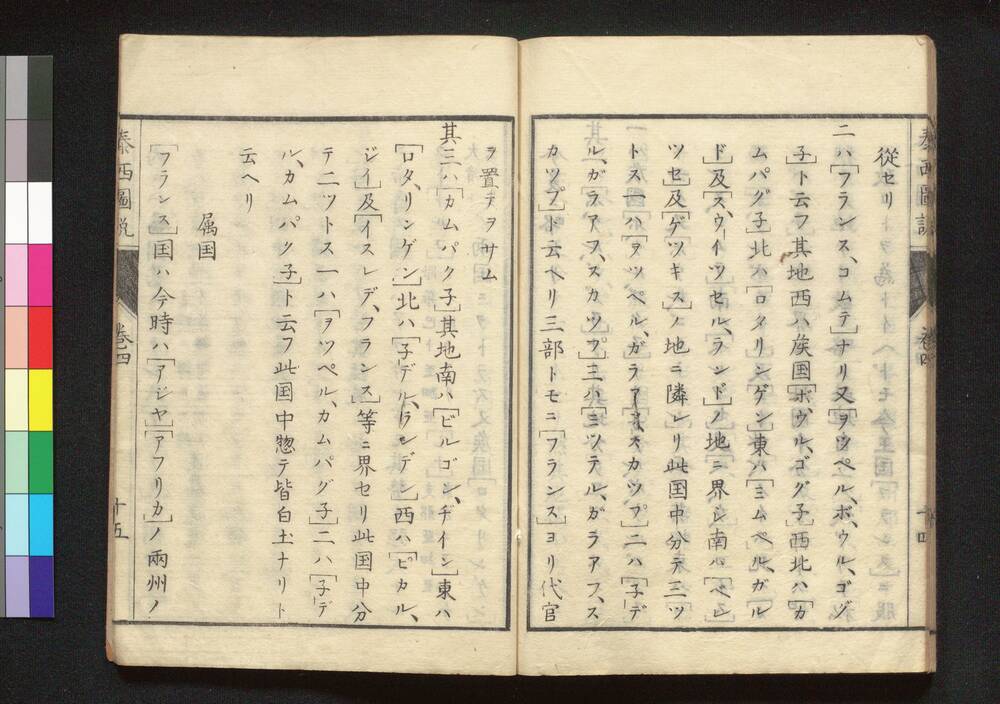 從セリ
二ハ「フランス、コムテ」ナリ又「ヲウペル、ボ、ウル、ゴン
子」ト云フ其地西ハ矦国「ボ、ウル、ゴグ子」西北ハ「カ
ムパグ子」北ハ「ロタリンゲン」東ハ「ミムペル、ガル
ド」及「ス、ウ、イツセル、ランド」ノ地ニ界シ南ハ「ベレ
ツセ」及「ゲツキス」ノ地ニ隣レリ此国中分テ三ツ
トス一ハ「ヲツペル、ガラアフスカツプ」二ハ「子デ
ル、ガラアフ、スカツプ」三ハ「ミツテル、ガラアフ、ス
カツプ」ト云ヘリ三部トモニ「フランス」ヨリ代官
ヲ置テヲサム
其三ハ「カムパク子」其地南ハ「ビルゴン、ヂイン」東ハ
「ロタ、リンゲン」北ハ「子デル、ランデン」西ハ「ピカル、
ジイ」及「イスレ、デ、フランス」等ニ界セリ此国中分
テ二ツトス一ハ「ヲツペル、カムパグ子」二ハ「子デ
ル、カムパク子」ト云フ此国中惣テ皆白土ナリト
云ヘリ
属国
「フランス」国ハ今時ハ「アジヤ」「アフリカ」ノ兩州ノ
泰西圖説
巻四
十四
泰西圖説
巻四
十五